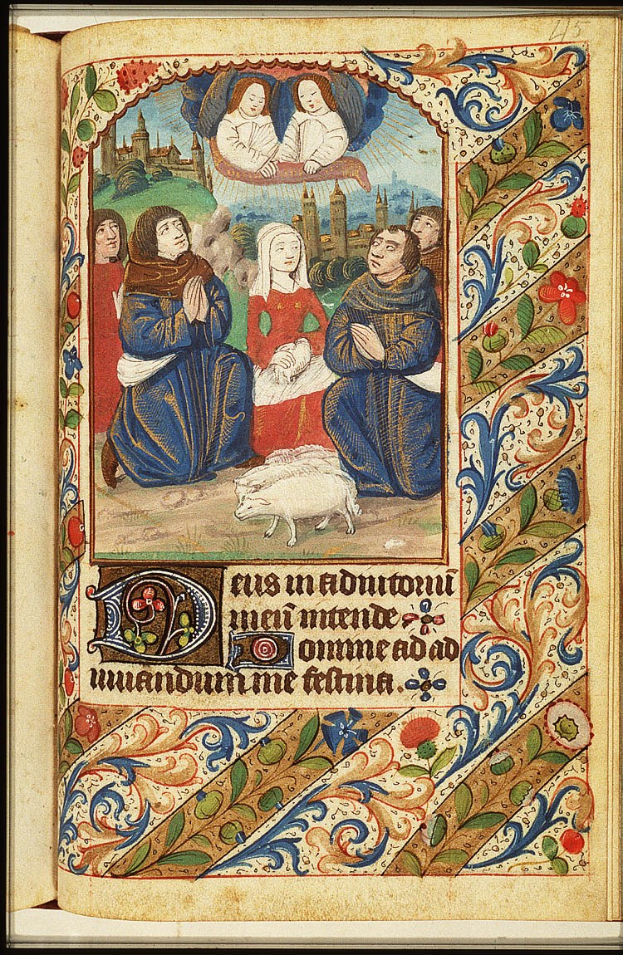 45
Deus in adiutoriū
meū intende
Domine ad ad
iuuandum me festina.